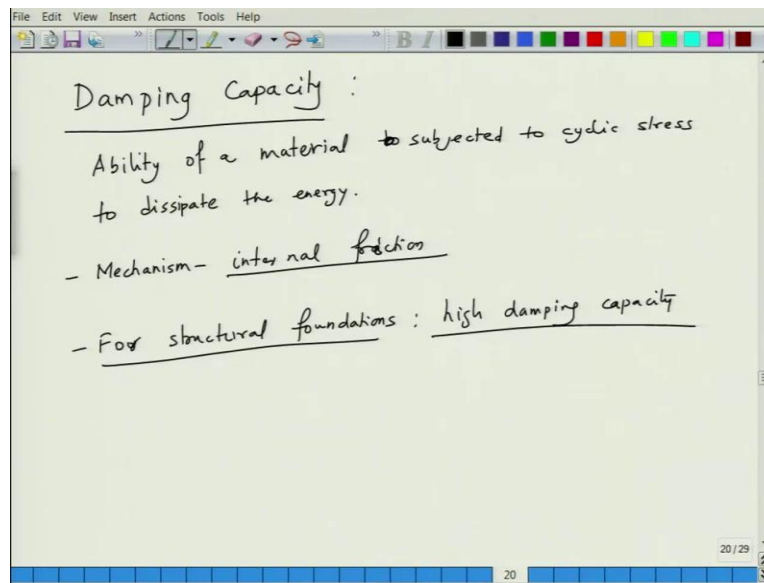 File Edit View Insert Actions Tools Help
Damping Capacity :
Ability of a material subjected to cyclic stress
to dissipate the energy.
- Mechanism - internal friction
- For structural foundations : high damping capacity
20/29
20